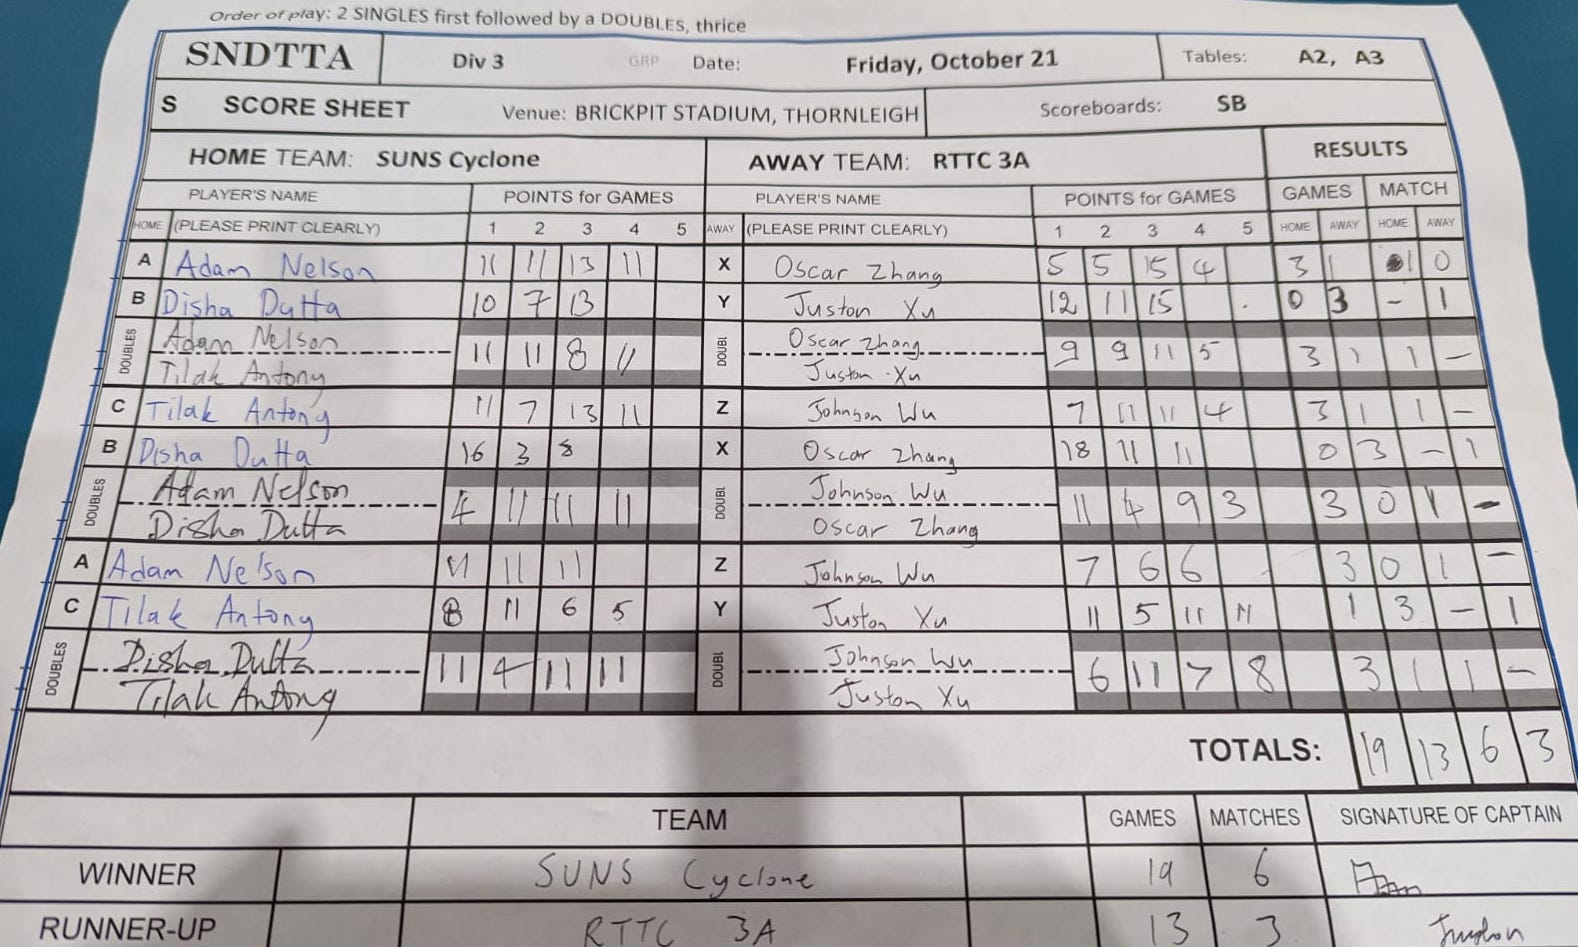 Order of play: 2 SINGLES first followed by a DOUBLES, thrice
SNDTTA Div 3 GRP Date: Friday, October 21 Tables: A2, A3
S SCORE SHEET Venue: BRICKPIT STADIUM, THORNLEIGH Scoreboards: SB
HOME TEAM: SUNS Cyclone AWAY TEAM: RTTC 3A RESULTS
PLAYER'S NAME POINTS for GAMES PLAYER'S NAME POINTS for GAMES GAMES MATCH
HOME (PLEASE PRINT CLEARLY) 1 2 3 4 5 AWAY (PLEASE PRINT CLEARLY) 1 2 3 4 5 HOME AWAY HOME AWAY
A Adam Nelson 11 11 13 11 X Oscar Zhang 5 5 15 4 3 1 1 0
B Disha Dutta 10 7 13 Y Juston Xu 12 11 15 0 3 - 1
DOUBLES Adam Nelson 11 11 8 11 DOUBL Oscar Zhang 9 9 11 5 3 1 1 -
Tilak Antony Juston Xu
C Tilak Antony 11 7 13 11 Z Johnson Wu 7 11 11 4 3 1 1 -
B Disha Dutta 16 3 8 X Oscar Zhang 18 11 11 0 3 - 1
DOUBLES Adam Nelson 4 11 11 11 DOUBL Johnson Wu 11 4 9 3 3 0 1 -
Disha Dutta Oscar Zhang
A Adam Nelson 11 11 11 Z Johnson Wu 7 6 6 3 0 1 -
C Tilak Antony 8 11 6 5 Y Juston Xu 11 5 11 11 1 3 - 1
DOUBLES Disha Dutta 11 4 11 11 DOUBL Johnson Wu 6 11 7 8 3 1 1 -
Tilak Antony Juston Xu
TOTALS: 19 13 6 3
TEAM GAMES MATCHES SIGNATURE OF CAPTAIN
WINNER SUNS Cyclone 19 6
RUNNER-UP RTTC 3A 13 3 Juston